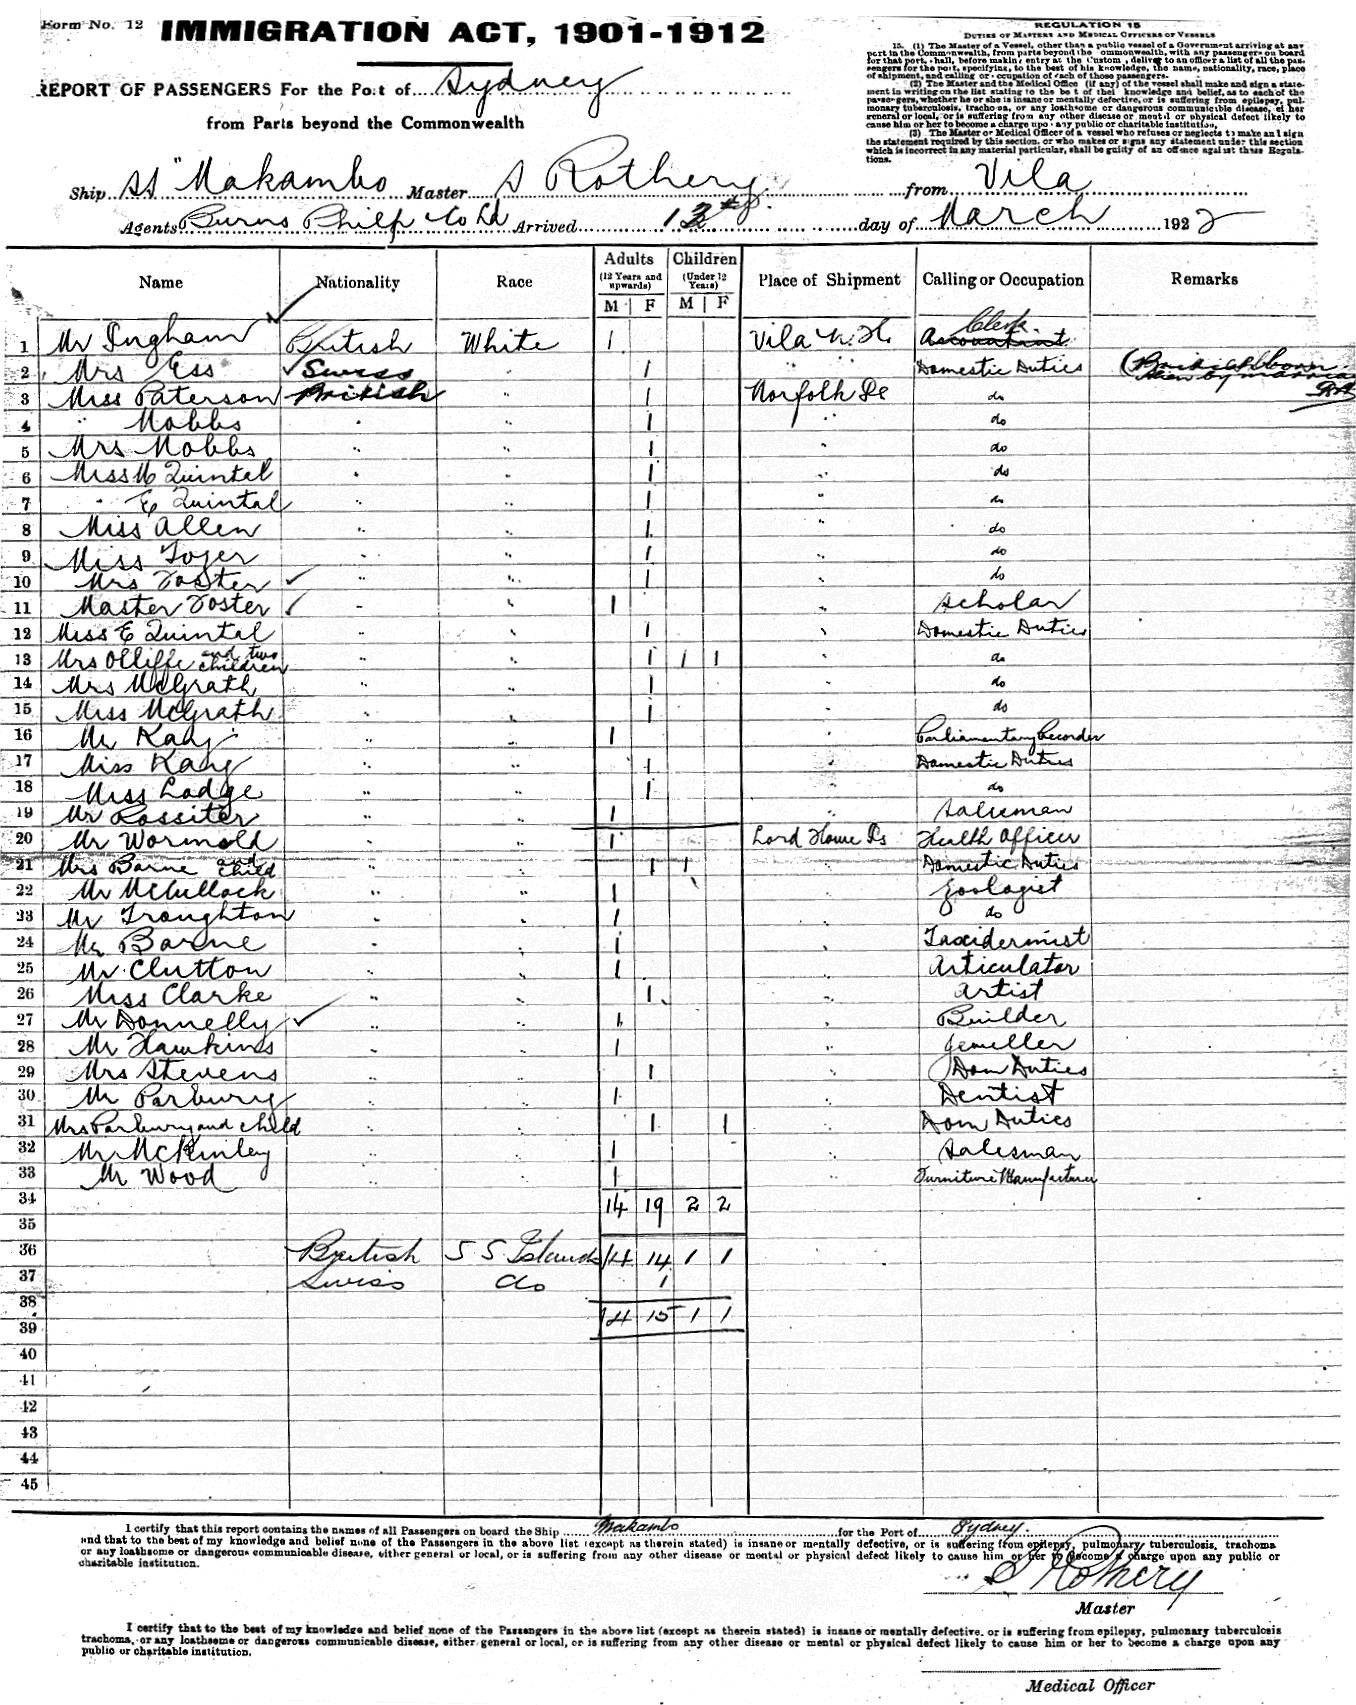 Form No. 12
IMMIGRATION ACT, 1901-1912
REPORT OF PASSENGERS For the Port of Sydney
from Parts beyond the Commonwealth
REGULATION 15
DUTIES OF MASTERS AND MEDICAL OFFICERS OF VESSELS
15. (1) The Master of a Vessel, other than a public vessel of a Government arriving at any
port in the Commonwealth, from parts beyond the Commonwealth, with any passengers on board
for that port, shall, before making entry at the Customs, deliver to an officer a list of all the pas-
sengers for the port, specifying, to the best of his knowledge, the name, nationality, race, place
of shipment, and calling or occupation of each of those passengers.
(2) The Master and the Medical Office (if any) of the vessel shall make and sign a state-
ment in writing on the list stating to the best of their knowledge and belief, as to each of the
passengers, whether he or she is insane or mentally defective, or is suffering from epilepsy, pul-
monary tuberculosis, trachoma, or any loathsome or dangerous communicable disease, either
general or local, or is suffering from any other disease or mental or physical defect likely to
cause him or her to become a charge upon any public or charitable institution.
(3) The Master or Medical Officer of a vessel who refuses or neglects to make and sign
the statement required by this section, or who makes or signs any statement under this section
which is incorrect in any material particular, shall be guilty of an offence against these Regula-
tions.
Ship SS "Makambo Master S Rothery from Vila
Agents Burns Philp & Co Ld Arrived 13th day of March 1922
Name Nationality Race Adults (12 Years and upwards) M F Children (Under 12 Years) M F Place of Shipment Calling or Occupation Remarks
Clerk
1 Mr Ingham British White 1 Vila N. H. Accountant
2 Mrs Ess Swiss " 1 " " Domestic Duties
3 Miss Paterson British " 1 Norfolk Is do
4 " Nobbs " " 1 " do
5 Mrs Nobbs " " 1 " do
6 Miss M Quintal " " 1 " do
7 " E Quintal " " 1 " do
8 Miss Allen " " 1 " do
9 Miss Tozer " " 1 " do
10 Mrs Foster " " 1 " do
11 Master Foster " " 1 " Scholar
12 Miss E Quintal " " 1 " Domestic Duties
13 Mrs Olliffe and two children " " 1 1 1 " do
14 Mrs McGrath " " 1 " do
15 Miss McGrath " " 1 " do
16 Mr Kay " " 1 " Parliamentary Recorder
17 Miss Kay " " 1 " Domestic Duties
18 Miss Lodge " " 1 " do
19 Mr Rossiter " " 1 " Salesman
20 Mr Wormald " " 1 Lord Howe Is Health Officer
21 Mrs Barne and child " " 1 1 " Domestic Duties
22 Mr McCullock " " 1 " Zoologist
23 Mr Troughton " " 1 " do
24 Mr Barne " " 1 " Taxidermist
25 Mr Clutton " " 1 " Articulator
26 Miss Clarke " " 1 " Artist
27 Mr Donnelly " " 1 " Builder
28 Mr Hawkins " " 1 " Jeweller
29 Mrs Stevens " " 1 " Dom Duties
30 Mr Parbury " " 1 " Dentist
31 Mrs Parbury and child " " 1 1 " Dom Duties
32 Mr McKinley " " 1 " Salesman
33 Mr Wood " " 1 " Furniture Manufacturer
34 14 19 2 2
35
36 British S S Islands 14 14 1 1
37 Swiss do 1
38
39 14 15 1 1
40
41
42
43
44
45
I certify that this report contains the names of all Passengers on board the Ship Makambo for the Port of Sydney.
and that to the best of my knowledge and belief none of the Passengers in the above list (except as therein stated) is insane or mentally defective, or is suffering from epilepsy, pulmonary tuberculosis, trachoma
or any loathsome or dangerous communicable disease, either general or local, or is suffering from any other disease or mental or physical defect likely to cause him or her to become a charge upon any public or
charitable institution.
S Rothery
Master
I certify that to the best of my knowledge and belief none of the Passengers in the above list (except as therein stated) is insane or mentally defective, or is suffering from epilepsy, pulmonary tuberculosis
trachoma, or any loathsome or dangerous communicable disease, either general or local, or is suffering from any other disease or mental or physical defect likely to cause him or her to become a charge upon any
public or charitable institution.
Medical Officer